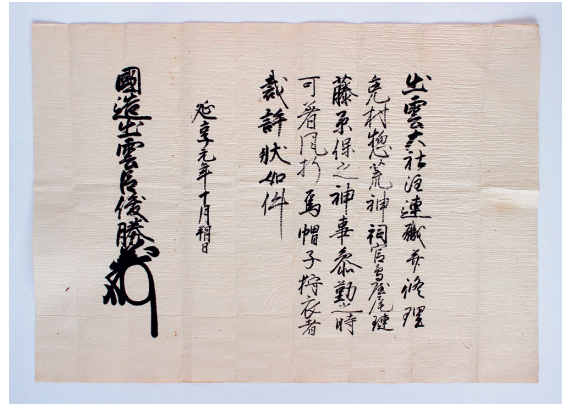 出雲大社注連職并修理
免村惣荒神祠官鳥屋尾
藤原保之神事参勤之時
可着風折烏帽子狩衣者
裁許状如件
延享元年十月朔日
國造出雲臣俊勝